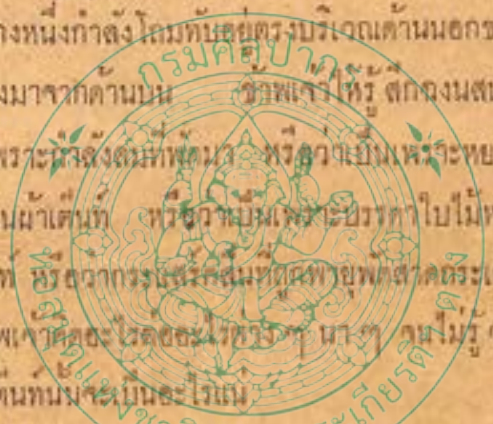 างหนึ่งกำลังโถมทับอยู่ตรงบริเวณด้านนอกข
งมาจากด้านบน ข้าพเจ้าให้รู้สึกฉงนสน
พราะกำลังลมที่พัดมา หรือว่าเป็นเพราะหย
นผ้าเต็นท์ หรือว่าเป็นเพราะบรรดาใบไม้ท
ท์ หรือว่ากระแสคลื่นที่ถูกพายุพัดสาดกระเ
พเจ้าคิดอะไรต่ออะไรต่าง ๆ นา ๆ จนไม่รู้
ต็นท์นั้นจะเป็นอะไรแน่
กรมศิลปากร
หอสมุดแห่งชาติ